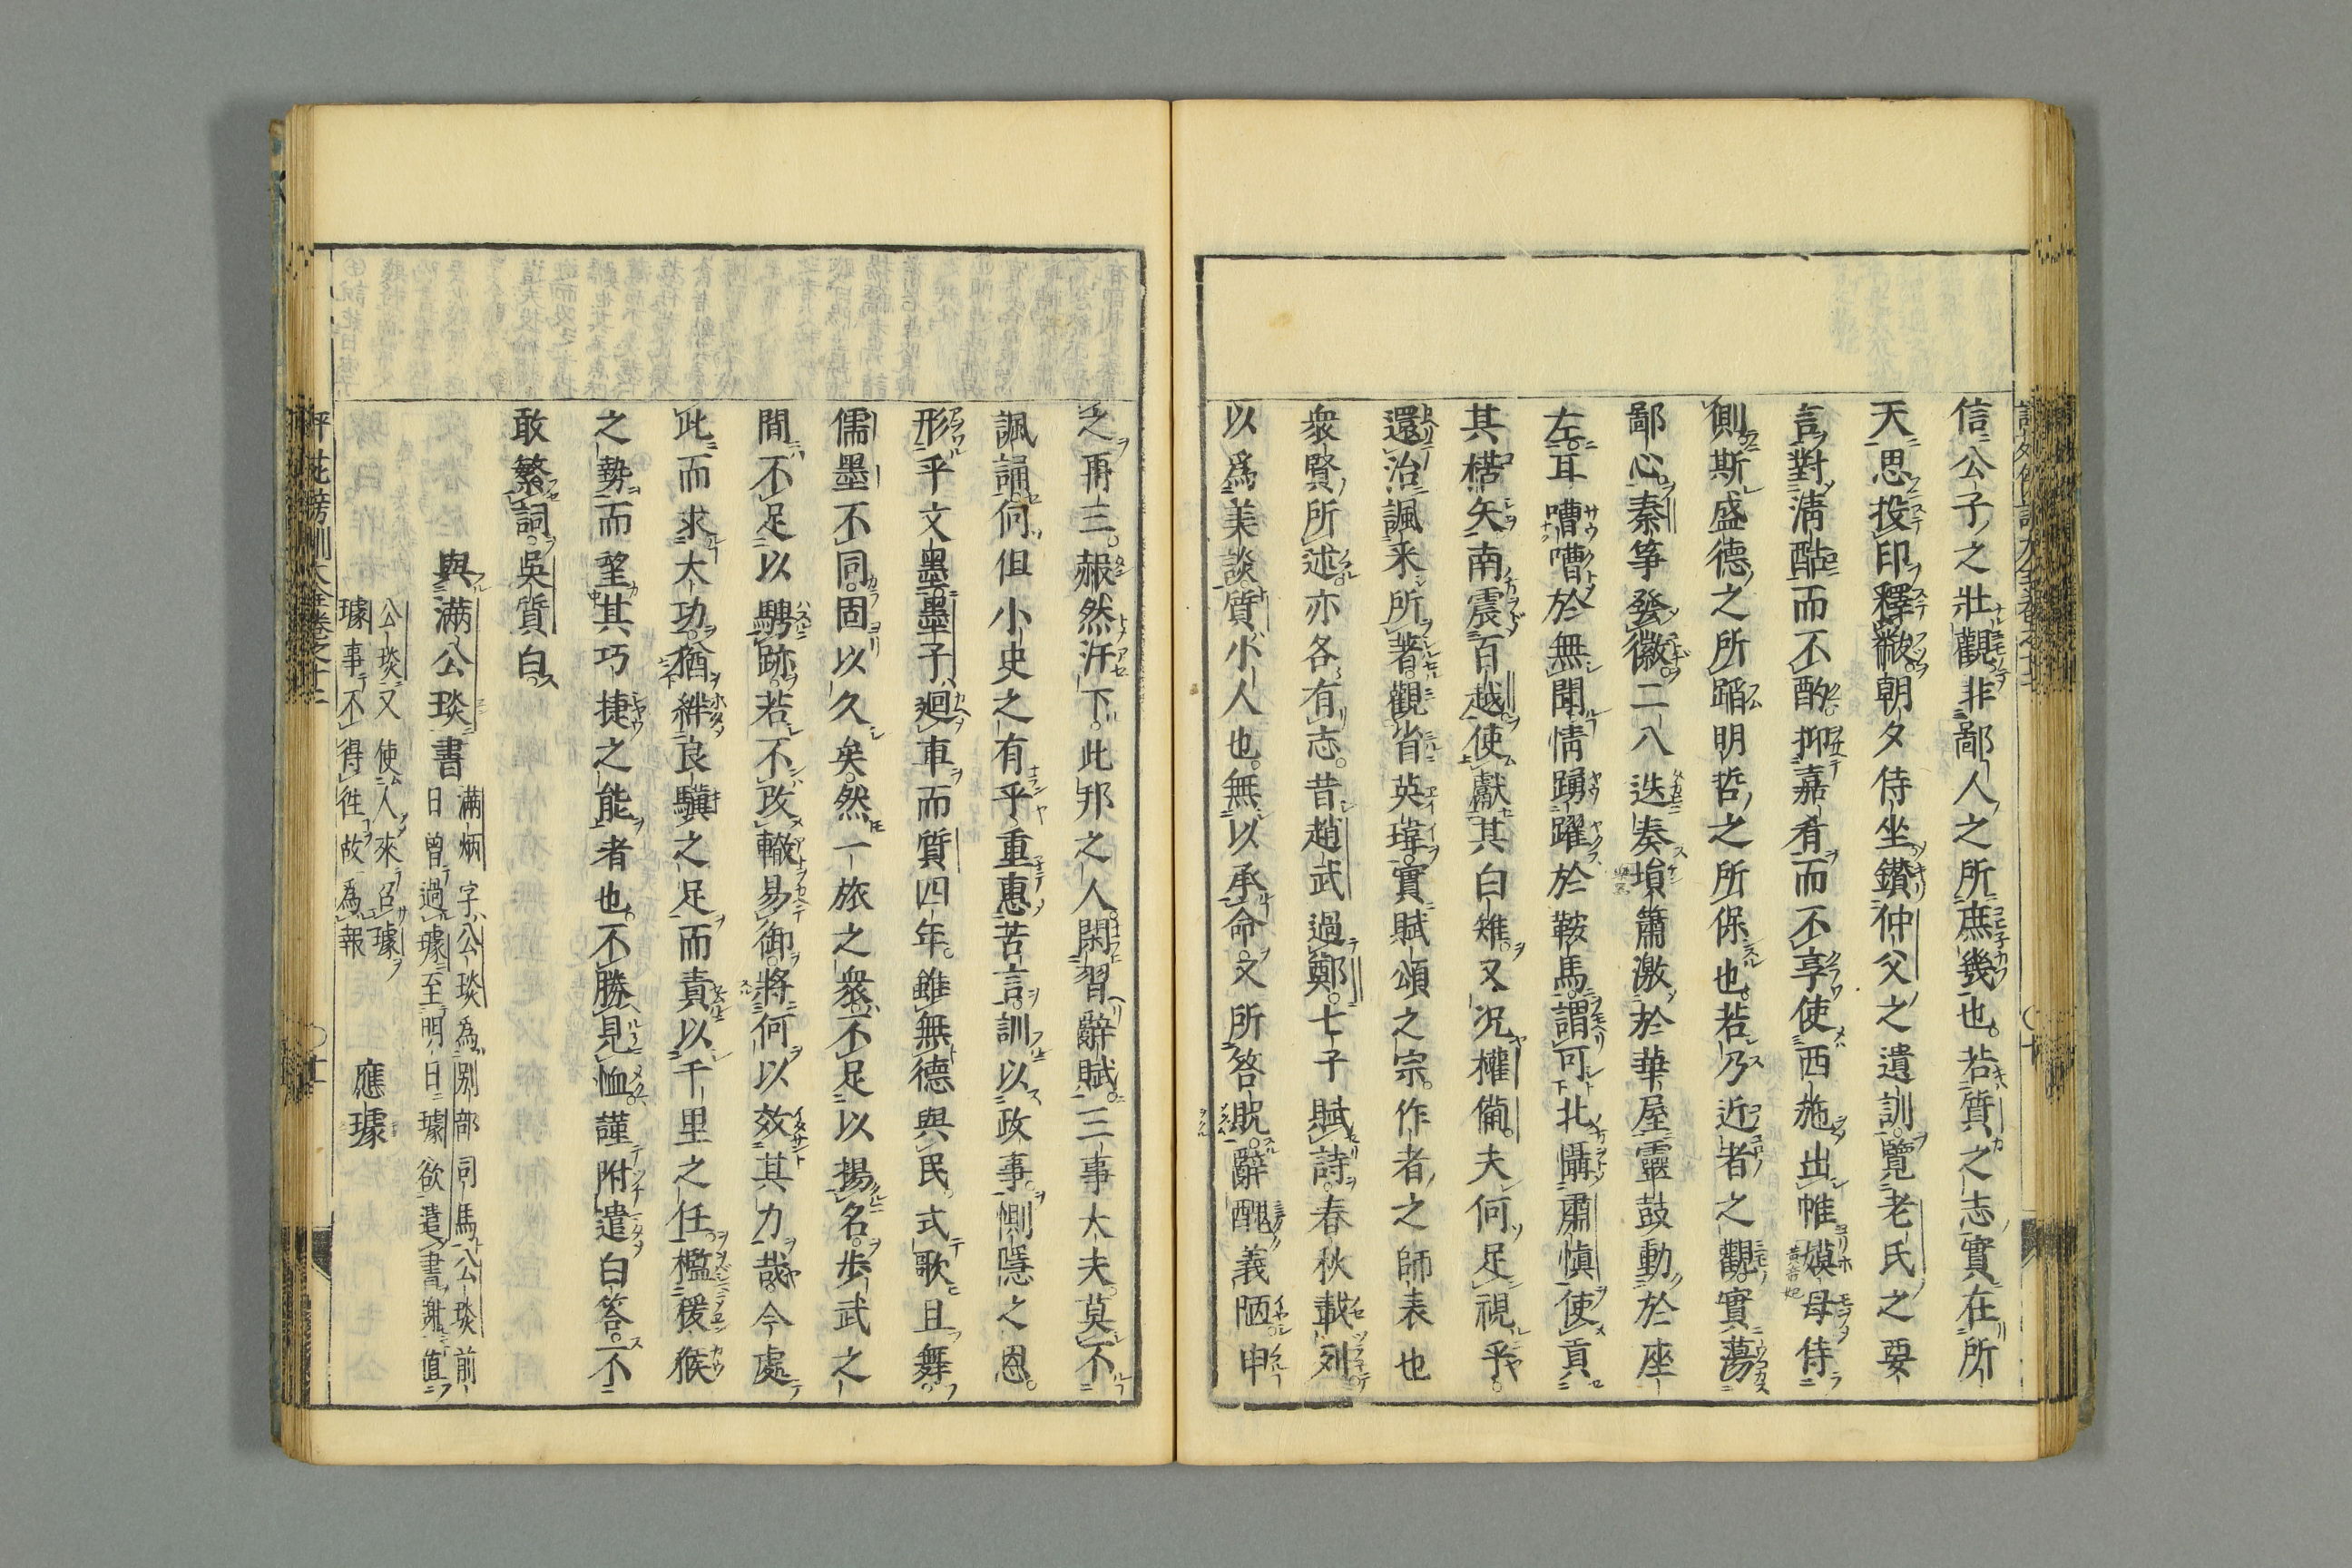 信公子之壯觀非鄙人之所庶幾也若質之志實在所
天思投印釋黻朝夕侍坐鑚仲父之遺訓覽老氏之要
言對淸酤而不酌抑嘉肴而不享使西施出帷嫫母侍
側斯盛德之所蹈明哲之所保也若乃近者之觀實蕩
鄙心秦筝發徽二八迭奏塤簫激於華屋靈鼓動於座
左耳嘈嘈於無聞情踴躍於鞍馬謂可北懾肅愼使貢
其楛矢南震百越使獻其白雉又况權備夫何足視乎
還治諷采所著觀省英瑋實賦頌之宗作者之師表也
衆賢所述亦各有志昔趙武過鄭七子賦詩春秋載列
以爲美談質小人也無以承命又所答貺辭醜義陋申
之再三赧然汗下此邦之人閑習辭賦三事大夫莫不
諷誦何但小史之有乎重惠苦言訓以政事惻隱之恩
形乎文墨墨子廻車而質四年雖無德與民式歌且舞
儒墨不同固以久矣然一旅之衆不足以揚名步武之
間不足以騁跡若不改轍易御將何以效其力哉今處
此而求大功猶絆良驥之足而責以千里之任檻猨猴
之勢而望其巧捷之能者也不勝見恤謹附遣白答不
敢繁詞吳質白
與滿公琰書
滿炳字公琰爲別部司馬公琰前
日曾過璩至明日璩欲遣書謝值
公琰又使人來召璩
璩事不得徃故爲報
應璩
評苑旁訓大全卷之十二
〇十一
〇十